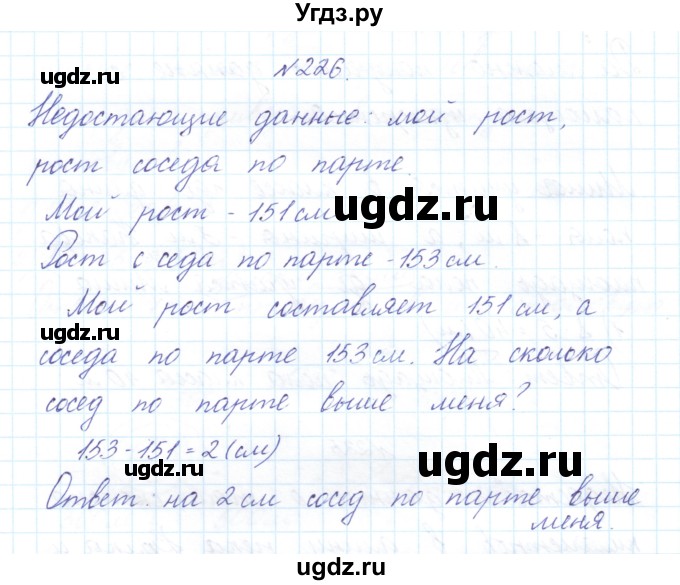 Угдз.ру
ugdz.ru
№226.
Недостающие данные: мой рост,
рост соседа по парте.
Мой рост - 151 см
ugdz.ru
Рост с седа по парте - 153 см.
Мой рост составляет 151 см, а
ugdz.ru
соседа по парте 153 см. На сколько
сосед по парте выше меня?
153-151=2(см)
ugdz.ru
Ответ: на 2 см сосед по парте выше
меня.
ugdz.ru
ugdz.ru